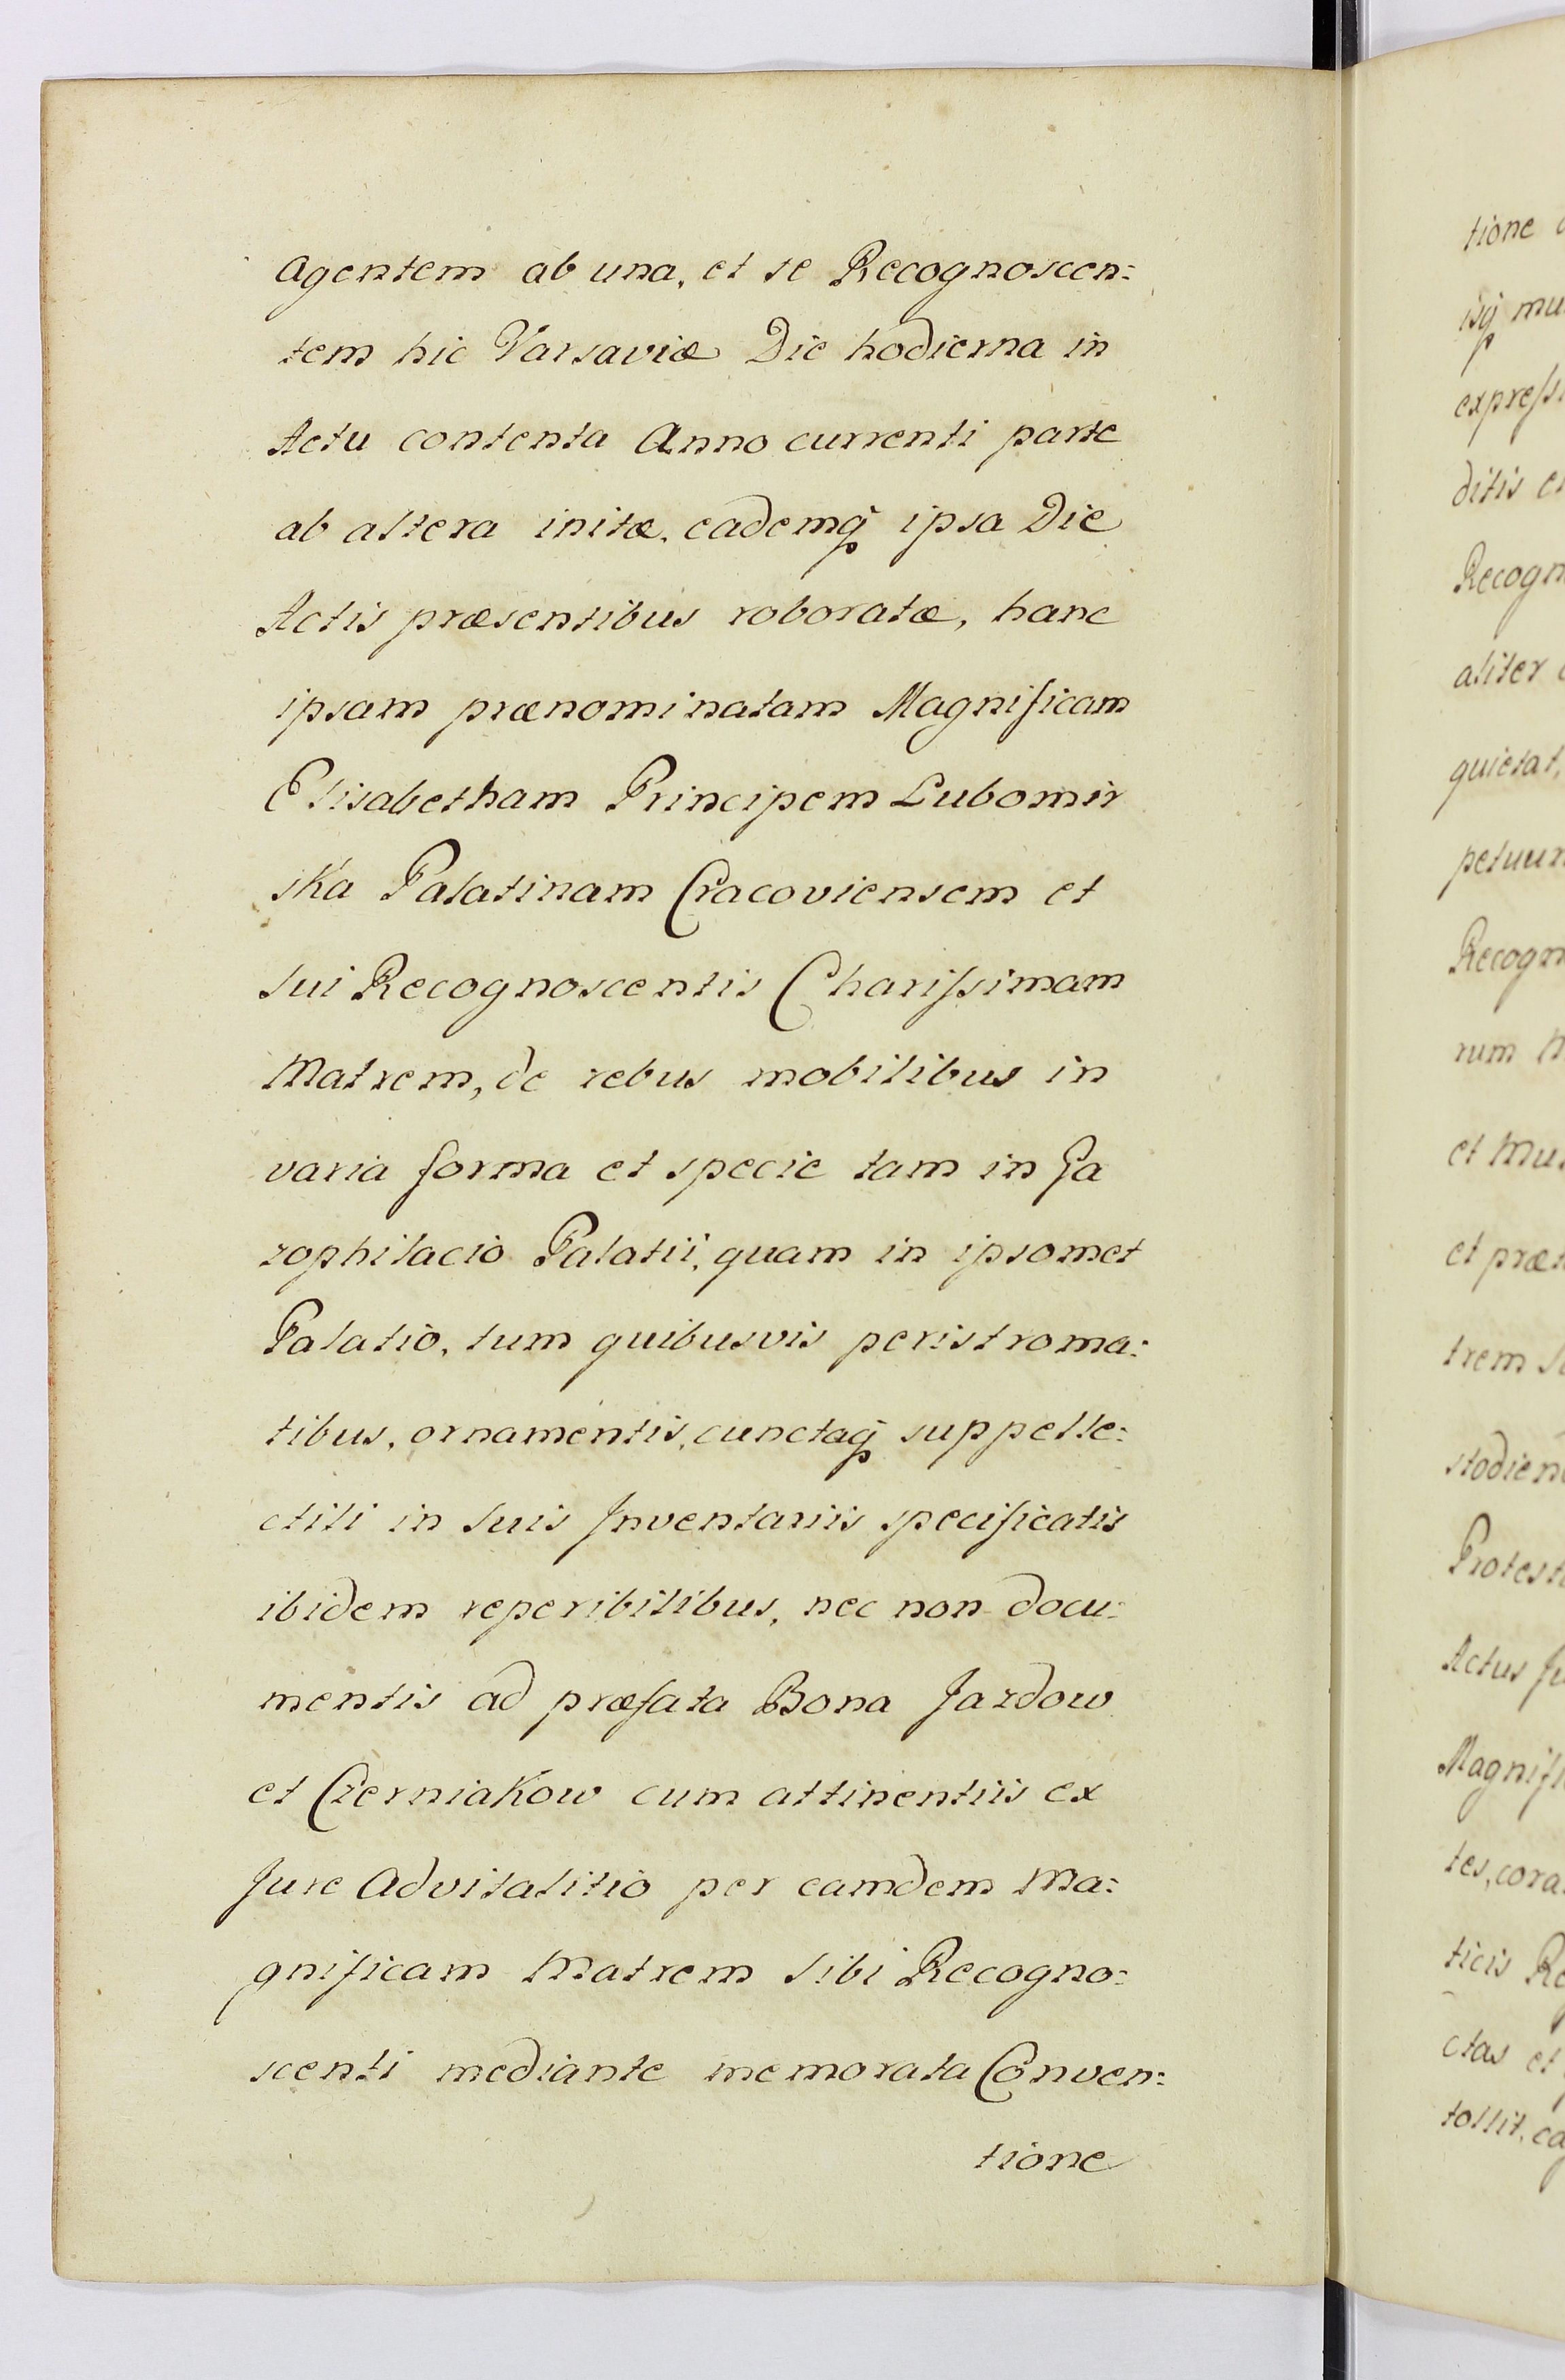 Agentem ab una, et se Recognoscen:
tem hic Varsaviæ Die hodierna in
Actu contenta Anno currenti parte
ab altera initæ, eademq̃ ipsa Die
Actis præsentibus roboratæ, hanc
ipsam prænominatam Magnificam
Elisabetham Principem Lubomir
ska Palatinam Cracoviensem et
sui Recognoscentis Charissimam
Matrem, de rebus mobilibus in
varia forma et specie tam in Ga
zophilacio Palatii, quam in ipsomet
Palatio, tum quibusvis peristroma:
tibus, ornamentis, cunctaq̃ suppelle:
ctili in suis Inventariis specificatis
ibidem reperibilibus, nec non docu:
mentis ad præfata Bona Jazdow
et Czerniakow cum attinentiis ex
Jure Advitalitio per eamdem Ma:
gnificam Matrem sibi Recogno:
scenti mediante memorata Conven:
tione
tione
isq̃ mu
expressi
ditis e
Recogn
aliter
quietat,
petuum
Recogn
rum M
et Mu
et præ
trem s
stodien
Protest
Actus
Magnifi
tes, cora
ticis Re
ctas et
tollit, ca